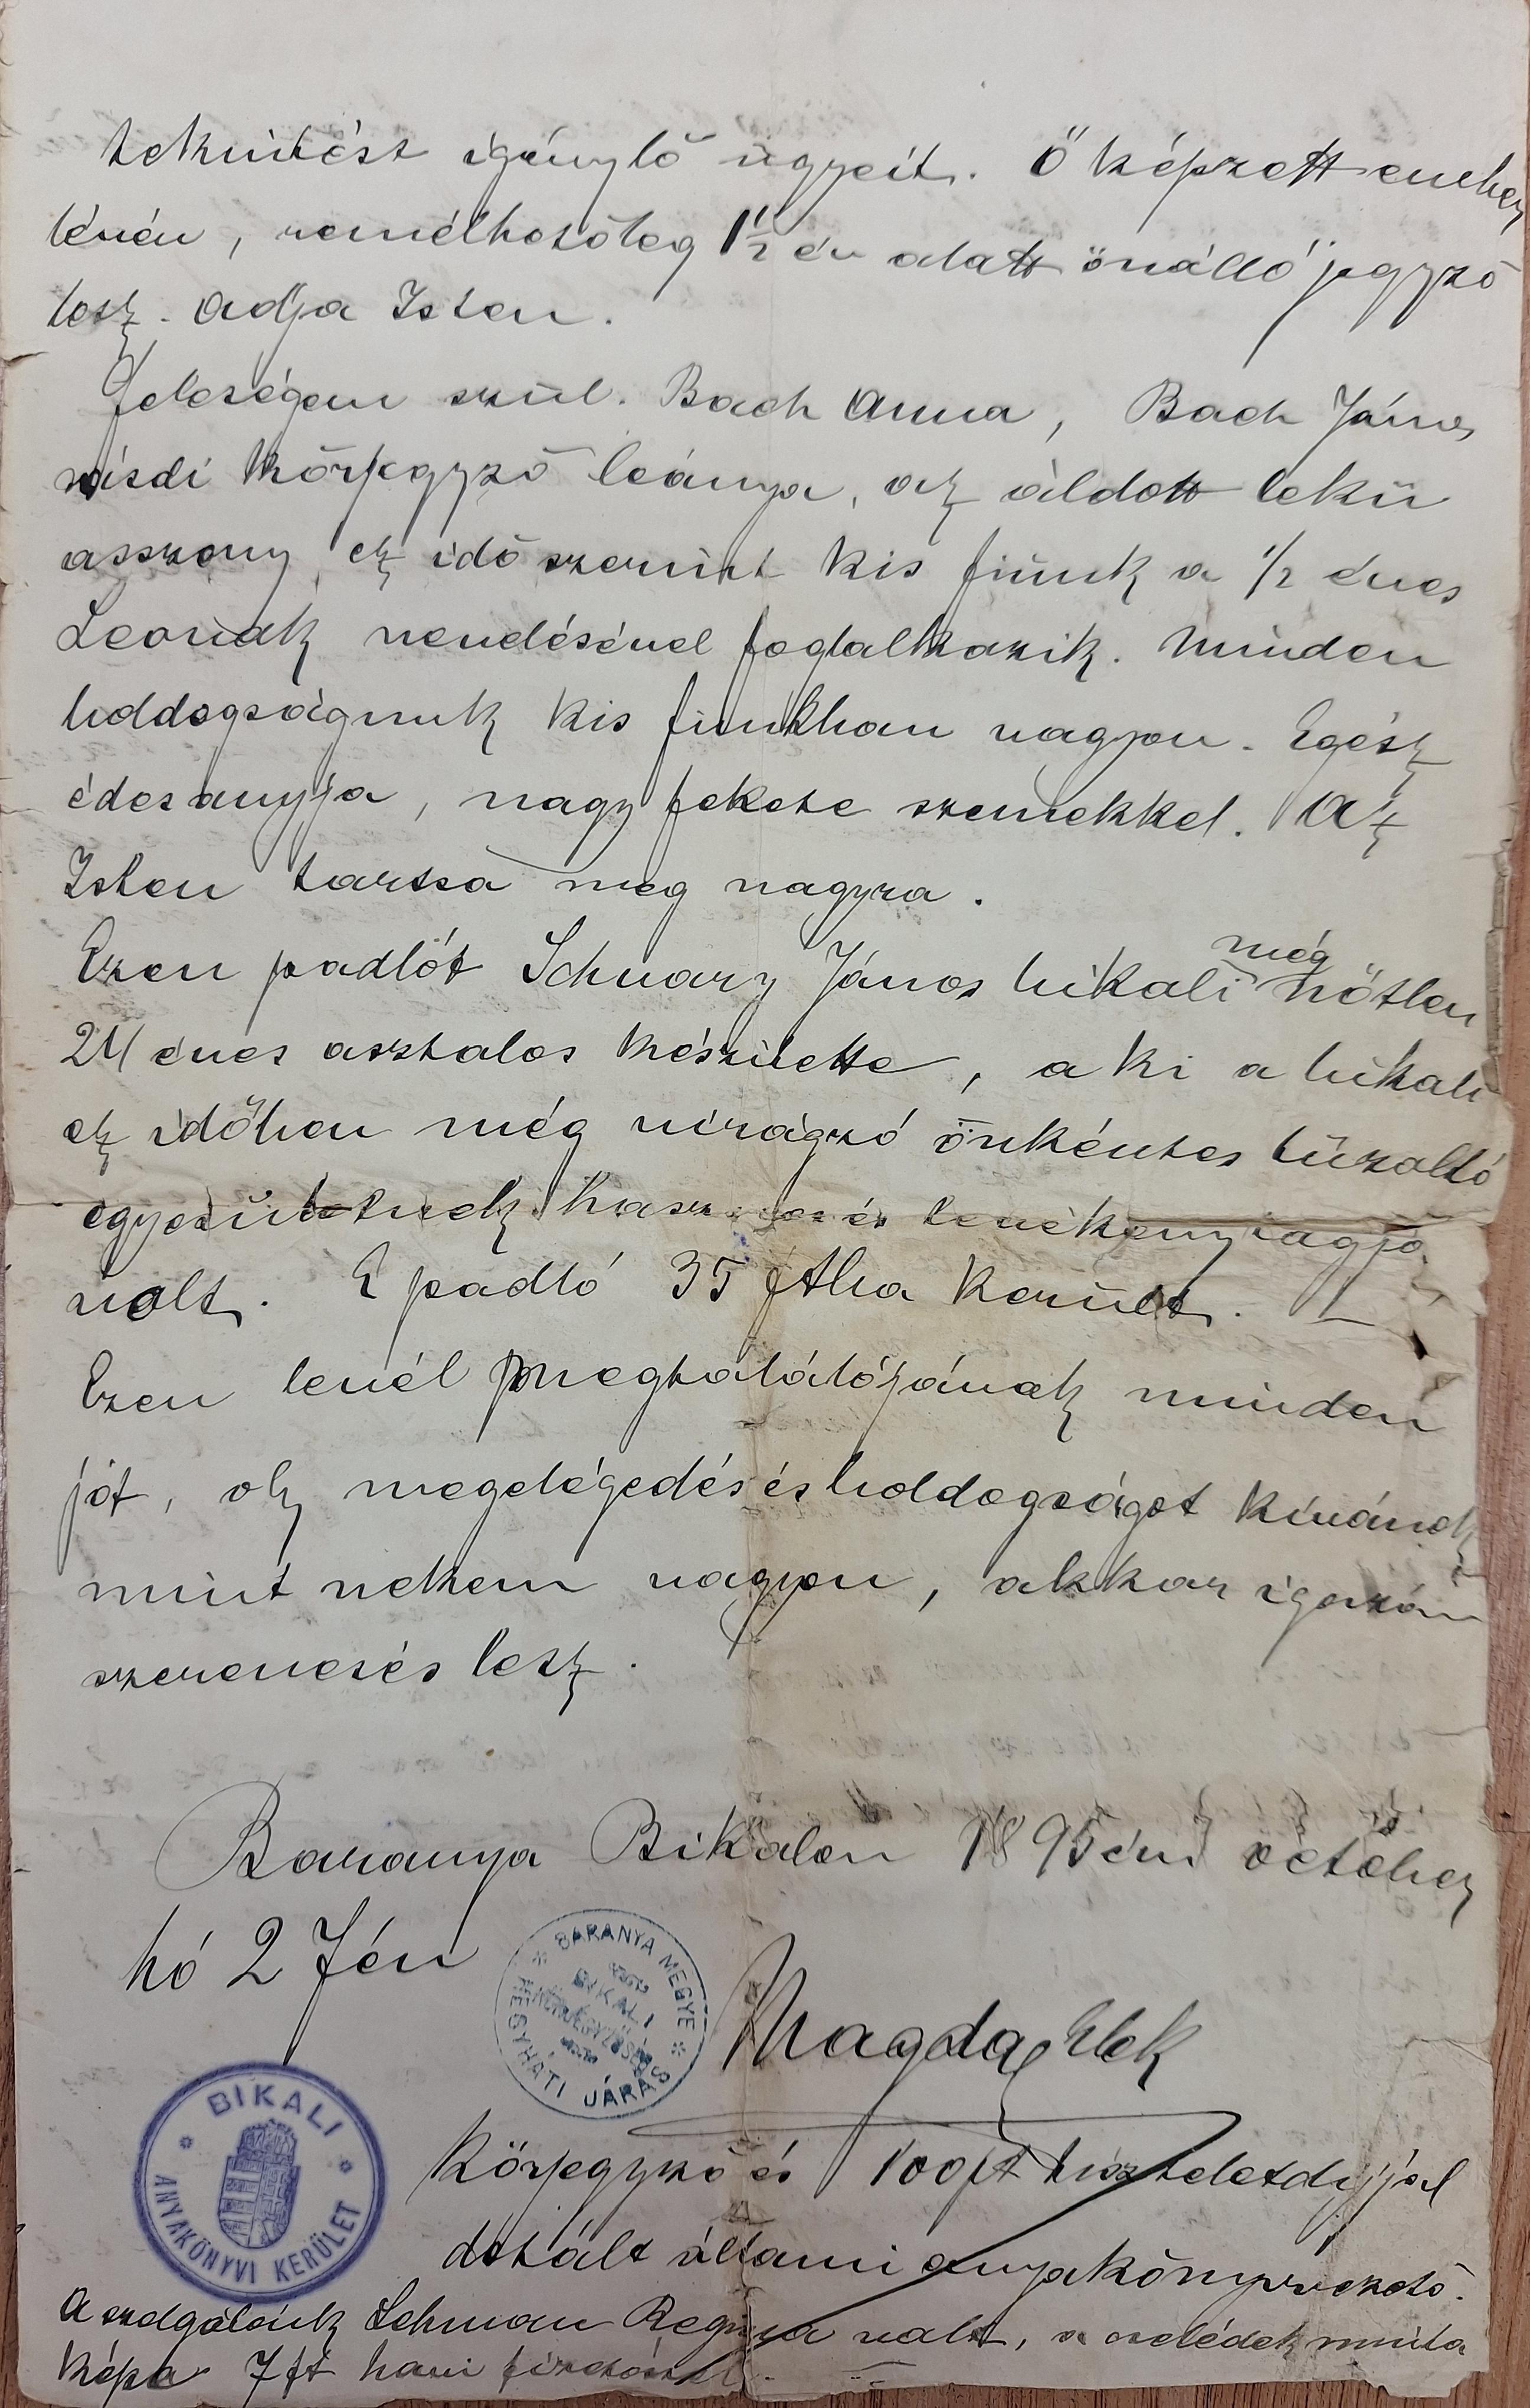 tekintést igénylő ügyeit. Ő képzett ember
lévén, remélhetőleg 1½ év alatt önálló jegyző
lesz. Adja Isten.
Feleségem szül. Bach Anna, Bach János
vásdi körjegyző leánya, az áldott lelkü
asszony, ez idő szerint kis fiunk a 1/2 éves
nevelésével foglalkozik. Minden
boldogságunk kis fiunkban vagyon. Egész
édesanyja, nagy fekete szemekkel. Az
Isten tartsa meg nagyra.
Ezen padlót Schvarz János bikali még nőtlen
24 éves asztalos készitette, a ki a bikali
ez időben még virágzó önkéntes tüzoltó
egyesületnek hasznos és tevékeny tagja
volt. E padló 35 ftba került.
Ezen levél megtalálójának minden
jót, oly megelégedés és boldogságot kivánok
mint nekem vagyon, akkor igazán
szerencsés lesz.
Baranya Bikalon 1895 évi október
hó 2 Jén
BARANYA MEGYE
BIKALI
HEGYHÁTI JÁRÁS
Magda Elek
BIKALI
ANYAKÖNYVI KERÜLET
Körjegyző és 100 ft tiszteletdijjal
dotált állami anyakönyvvezető.
A szolgálónk Lehman Regina volt, a cselédek minta
képe 7 ft havi fizetéssel.